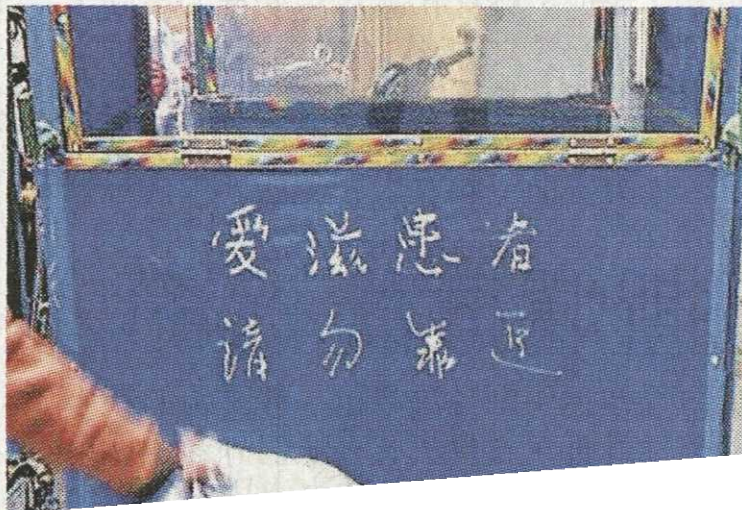 愛滋患者
請勿靠近